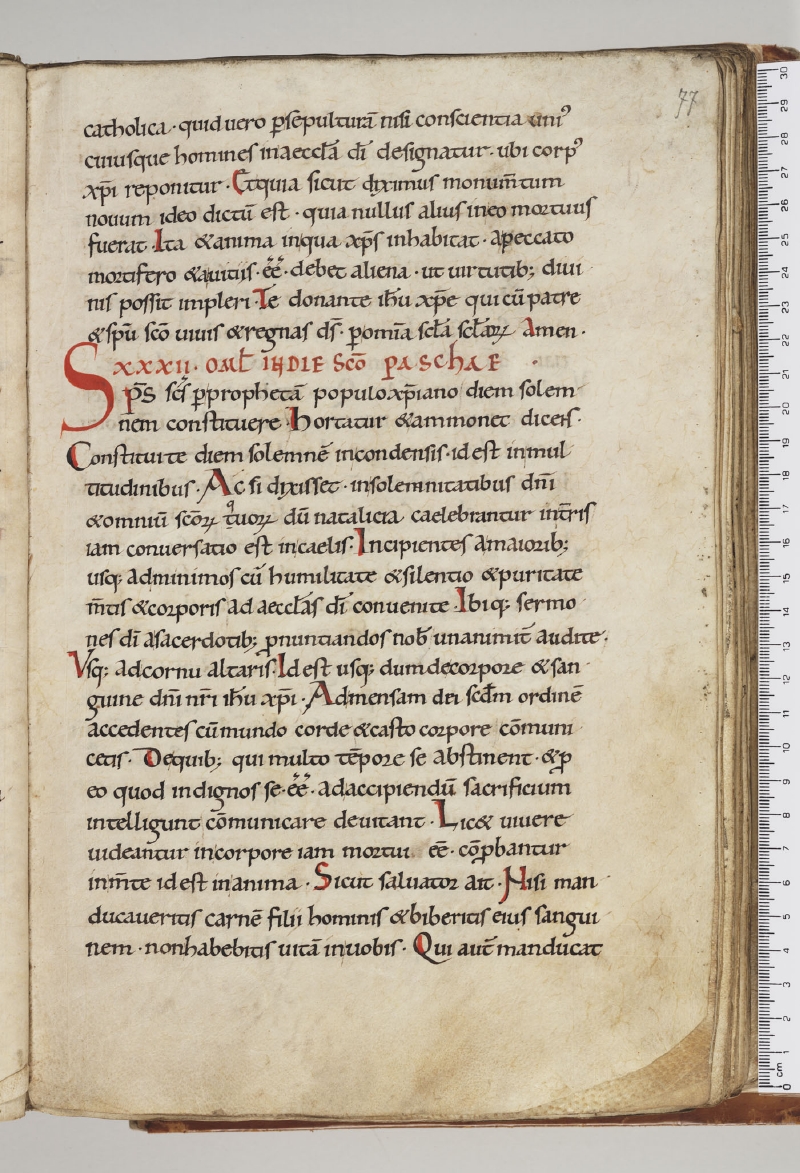 77
catholica · quid uero p̱sepulturā nisi conscientia uniꝰ
cuiusque homines inaeccła dī designatur · ubi corpꝰ
xp̄i reponitur · Et quia sicut diximus monum̄tum
nouum ideo dictū est · quia nullus alius ineo mortuus
fuerat · Ita &anima inqua xp̄s inhabitat · apeccato
mortifero &auitiis · ēē · debet aliena · ut uirtutib; diui
nis possit impleri · Te donante ih̄u xp̄e qui cū patre
&sp̄u sc̄o uiuis &regnas ds̄ · p̱ om̄ia scła scłaꝝ Amen ·
XXXII · OML̄ IN DIE SC̄O PASCHAE ·
Sp̄s sc̄s p̱prophetā populo xp̄iano diem solem
nem constituere · Hortatur &ammonet dicens ·
Constituite diem solemnē incondensis · id est inmul
titudinibus · Ac si dixisset · insolemnitatibus dn̄i
&omniū sc̄oꝝ quoꝝ dū natalicia caelebrantur int̄ris
iam conuersatio est incaelis · Incipientes amaiorib;
usq; adminimos cū humilitate &silentio &puritate
m̄tis &corporis ad aeccłas dī conuenite · Ibiq; sermo
nes dī asacerdotib; p̱nuntiandos nob̄ unanimit̄ audite ·
Vsq; adcornu altaris · Id est usq; dum decorpore &san
guine dn̄i nr̄i ih̄u xp̄i · Admensam dei scd̄m ordinē
accedentes cū mundo corde &casto corpore cōmuni
cetis · Dequib; qui multo tēpore se abstinent · &p̱
eo quod indignos se · ēē · adaccipiendū sacrificium
intelligunt cōmunicare deuitant · Lic& uiuere
uideantur incorpore iam mortui ēē · cōp̱bantur
inm̄te id est inanima · Sicut saluator ait · Nisi man
ducaueritis carnē filii hominis &biberitis eius sangui
nem · nonhabebitis uitā inuobis · Qui aut̄ manducat
30
29
28
27
26
25
24
23
22
21
20
19
18
17
16
15
14
13
12
11
10
9
8
7
6
5
4
3
2
1
cm
0